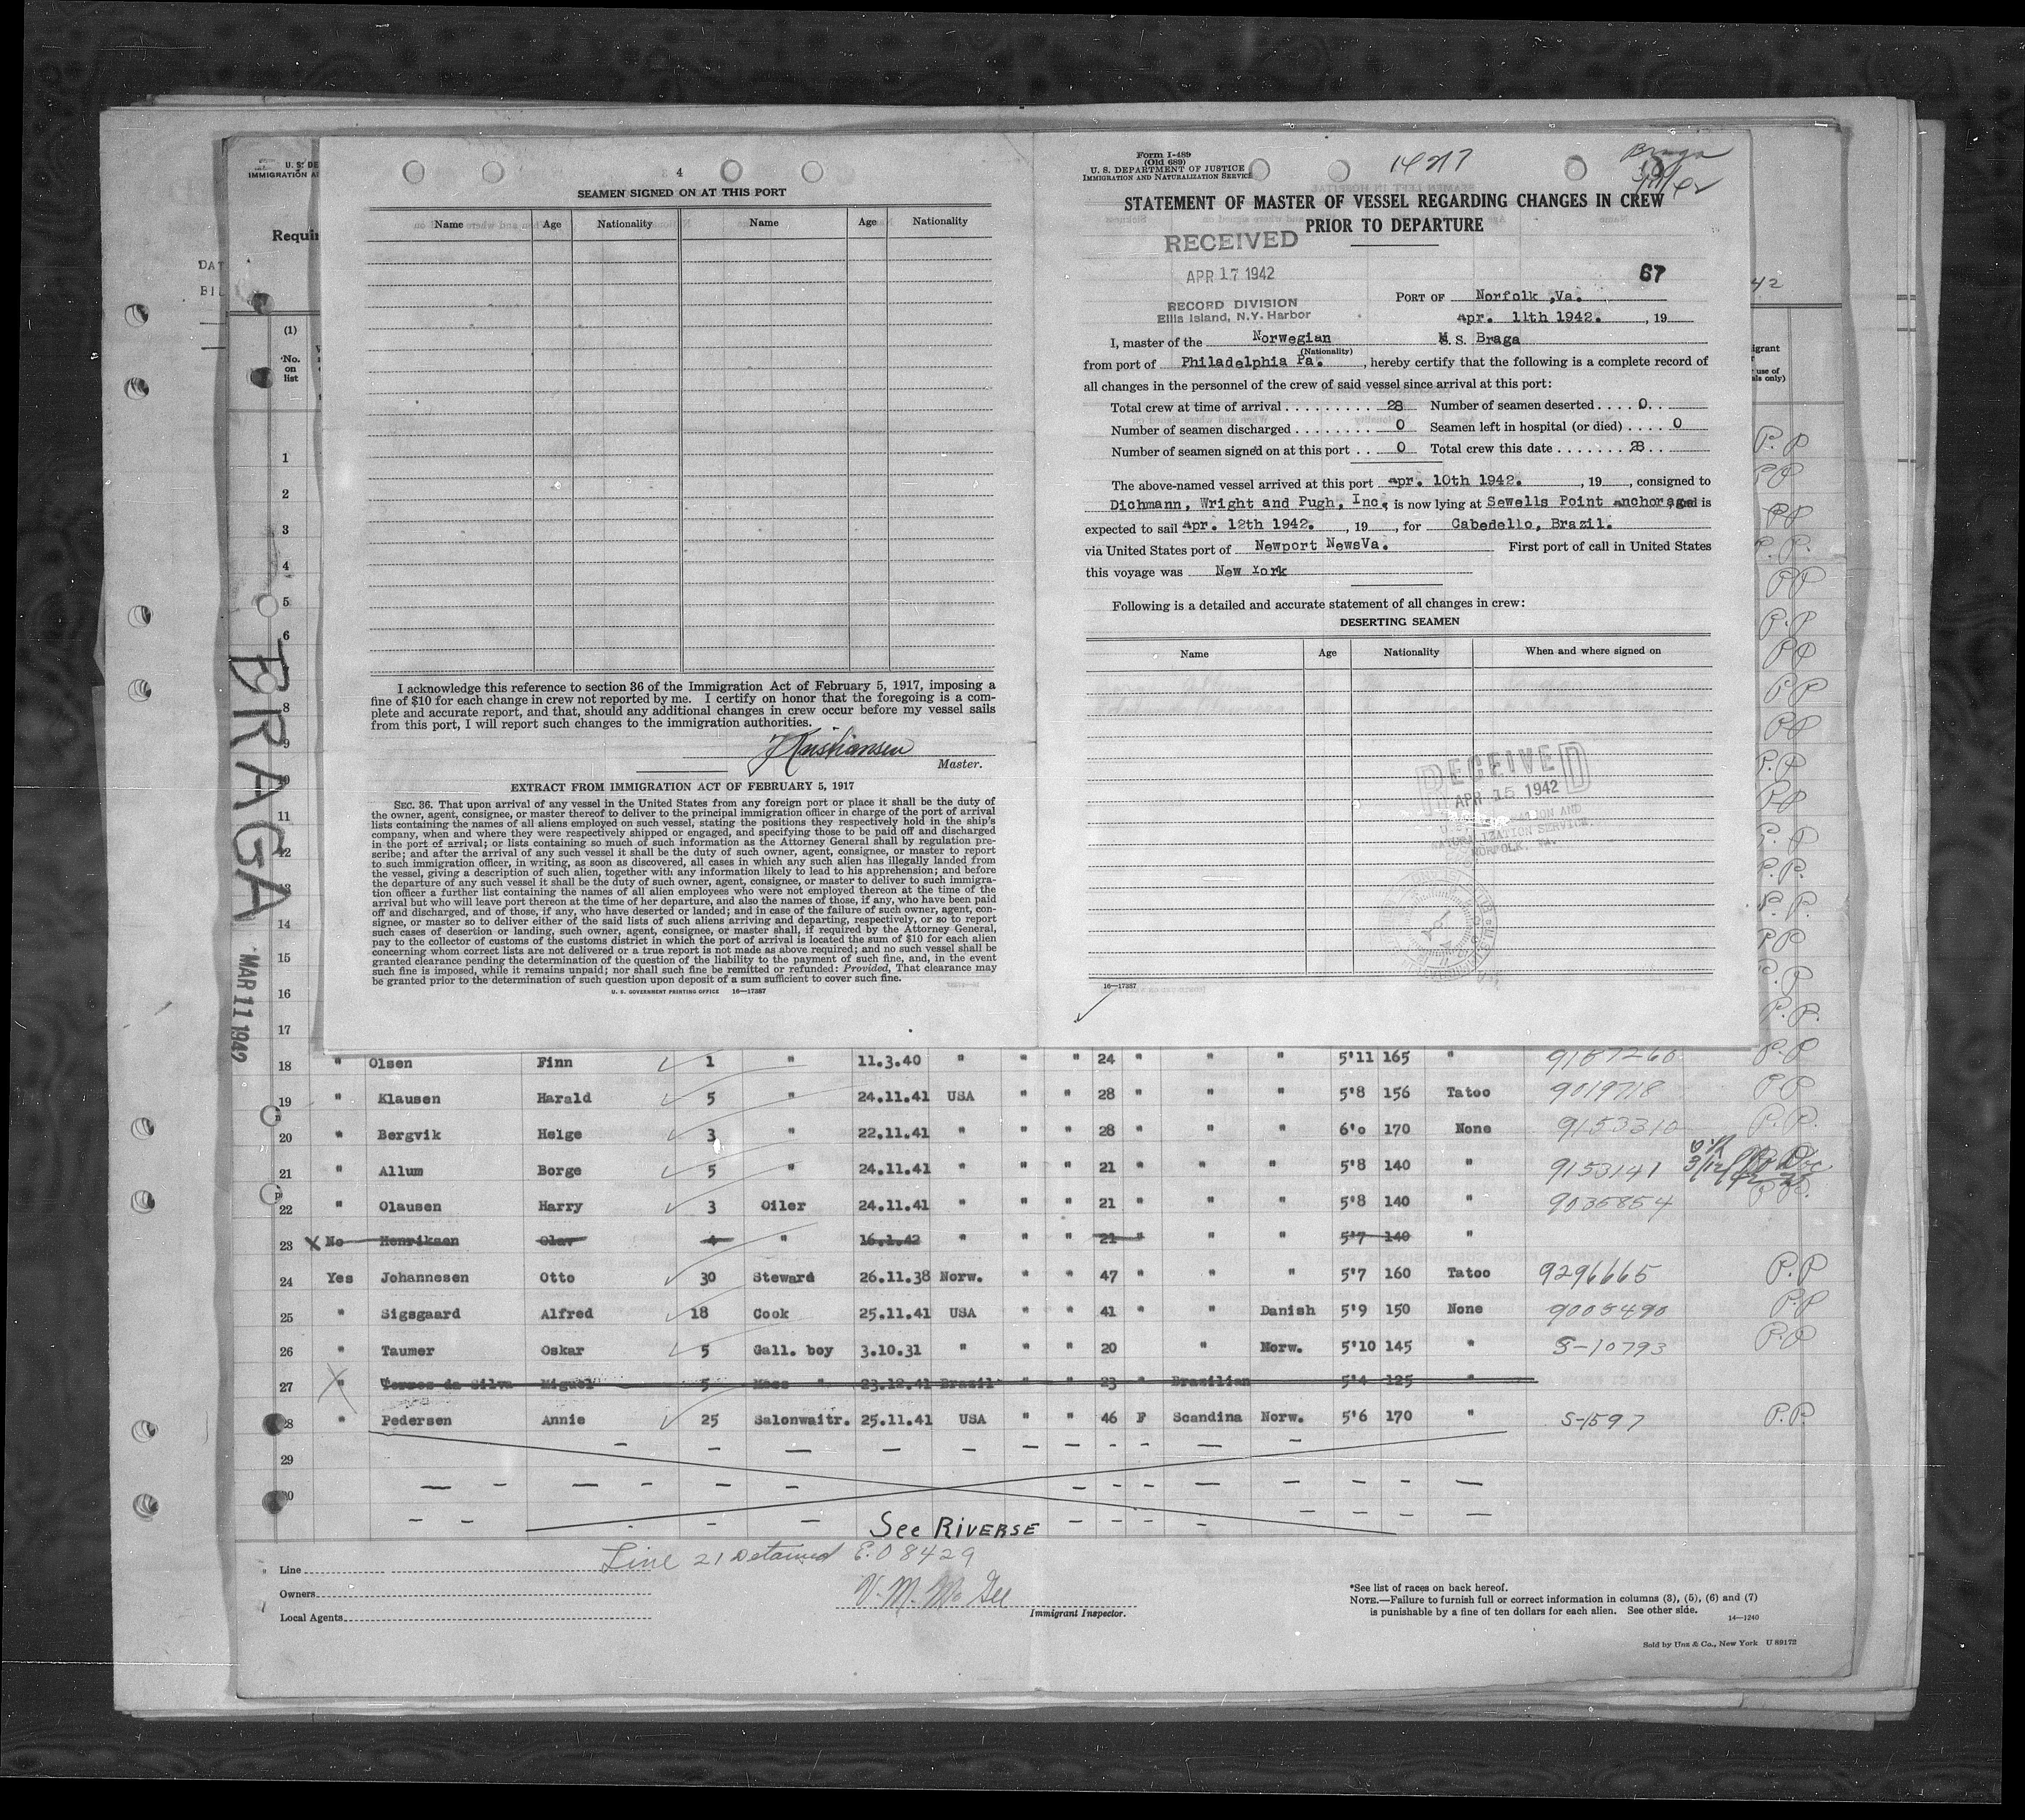 U. S. DE
IMMIGRATION A
Requir
DAT
BIL
(1)
No.
on
list
1
2
3
4
5
6
8
9
10
11
12
13
14
15
16
17
BRAGA
MAR 11 1942
4
SEAMEN SIGNED ON AT THIS PORT
Name Age Nationality Name Age Nationality
I acknowledge this reference to section 36 of the Immigration Act of February 5, 1917, imposing a
fine of $10 for each change in crew not reported by me. I certify on honor that the foregoing is a com-
plete and accurate report, and that, should any additional changes in crew occur before my vessel sails
from this port, I will report such changes to the immigration authorities.
Kristiansen
Master.
EXTRACT FROM IMMIGRATION ACT OF FEBRUARY 5, 1917
SEC. 36. That upon arrival of any vessel in the United States from any foreign port or place it shall be the duty of
the owner, agent, consignee, or master thereof to deliver to the principal immigration officer in charge of the port of arrival
lists containing the names of all aliens employed on such vessel, stating the positions they respectively hold in the ship's
company, when and where they were respectively shipped or engaged, and specifying those to be paid off and discharged
in the port of arrival; or lists containing so much of such information as the Attorney General shall by regulation pre-
scribe; and after the arrival of any such vessel it shall be the duty of such owner, agent, consignee, or master to report
to such immigration officer, in writing, as soon as discovered, all cases in which any such alien has illegally landed from
the vessel, giving a description of such alien, together with any information likely to lead to his apprehension; and before
the departure of any such vessel it shall be the duty of such owner, agent, consignee, or master to deliver to such immigra-
tion officer a further list containing the names of all alien employees who were not employed thereon at the time of the
arrival but who will leave port thereon at the time of her departure, and also the names of those, if any, who have been paid
off and discharged, and of those, if any, who have deserted or landed; and in case of the failure of such owner, agent, con-
signee, or master so to deliver either of the said lists of such aliens arriving and departing, respectively, or so to report
such cases of desertion or landing, such owner, agent, consignee, or master shall, if required by the Attorney General,
pay to the collector of customs of the customs district in which the port of arrival is located the sum of $10 for each alien
concerning whom correct lists are not delivered or a true report is not made as above required; and no such vessel shall be
granted clearance pending the determination of the question of the liability to the payment of such fine, and, in the event
such fine is imposed, while it remains unpaid; nor shall such fine be remitted or refunded: Provided, That clearance may
be granted prior to the determination of such question upon deposit of a sum sufficient to cover such fine.
U. S. GOVERNMENT PRINTING OFFICE 16—17387
Form I-489
(Old 689)
U. S. DEPARTMENT OF JUSTICE
IMMIGRATION AND NATURALIZATION SERVICE
Braga
STATEMENT OF MASTER OF VESSEL REGARDING CHANGES IN CREW
PRIOR TO DEPARTURE
RECEIVED
APR 17 1942
RECORD DIVISION
Ellis Island, N.Y. Harbor
67
PORT OF Norfolk ,Va.
Apr. 11th 1942. , 19
I, master of the Norwegian M.S. Braga
(Nationality)
from port of Philadelphia Pa. , hereby certify that the following is a complete record of
all changes in the personnel of the crew of said vessel since arrival at this port:
Total crew at time of arrival . . . . . . . . . 28 Number of seamen deserted . . . . 0
Number of seamen discharged . . . . . . . . 0 Seamen left in hospital (or died) . . . . 0
Number of seamen signed on at this port . . 0 Total crew this date . . . . . . . 28
The above-named vessel arrived at this port Apr. 10th 1942. , 19 , consigned to
Dichmann, Wright and Pugh, Inc, is now lying at Sewells Point Anchorage and is
expected to sail Apr. 12th 1942. , 19 , for Cabedello, Brazil.
via United States port of Newport NewsVa. First port of call in United States
this voyage was New York
Following is a detailed and accurate statement of all changes in crew:
DESERTING SEAMEN
Name Age Nationality When and where signed on
RECEIVED
APR 15 1942
NATURALIZATION SERVICE.
NORFOLK, VA.
16—17387
42
igrant
use of
als only)
18 " Olsen Finn 1 " 11.3.40 " " " 24 " " " 5'11 165 " 9187260 P.P
19 " Klausen Harald 5 " 24.11.41 USA " " 28 " " " 5'8 156 Tatoo 9019718 PP
20 " Bergvik Helge 3 " 22.11.41 " " " 28 " " " 6'0 170 None 9153310 P.P.
21 " Allum Borge 5 " 24.11.41 " " " 21 " " " 5'8 140 " 9153141
22 " Olausen Harry 3 Oiler 24.11.41 " " " 21 " " " 5'8 140 " 9035854
23 X No Henriksen Olav 4 " 16.1.42 " " 21 " " " 5'7 140 "
24 Yes Johannesen Otto 30 Steward 26.11.38 Norw. " " 47 " " " 5'7 160 Tatoo 9296665 P.P
25 " Sigsgaard Alfred 18 Cook 25.11.41 USA " " 41 " " Danish 5'9 150 None 9005490 P.P
26 " Taumer Oskar 5 Gall. boy 3.10.31 " " " 20 " Norw. 5'10 145 " S-10793 P.P
27 X " Torres da Silva Miguel 5 Mess " 23.12.41 Brazil " " 23 " Brazilian 5'4 125 "
28 " Pedersen Annie 25 Salonwaitr. 25.11.41 USA " " 46 F Scandina Norw. 5'6 170 " S-1597 P.P.
29
30
See RIVERSE
Line 21 Detained E.O 8429
Line
Owners
Local Agents
V. M. McGee
Immigrant Inspector.
*See list of races on back hereof.
NOTE.—Failure to furnish full or correct information in columns (3), (5), (6) and (7)
is punishable by a fine of ten dollars for each alien. See other side.
14—1240
Sold by Unz & Co., New York U 89172